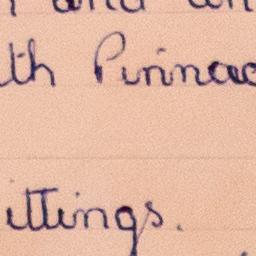 and
th Pinnac
ittings.